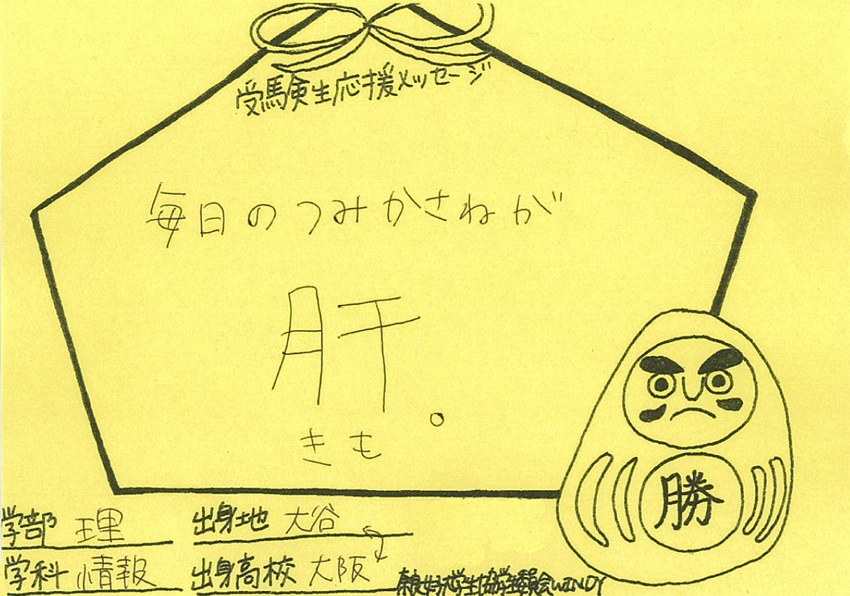 受験生応援メッセージ
毎日のつみかさねが
肝。
きも
勝
学部 理 出身地 大谷
学科 情報 出身高校 大阪
奈良女子大学生協学生委員会WINDY